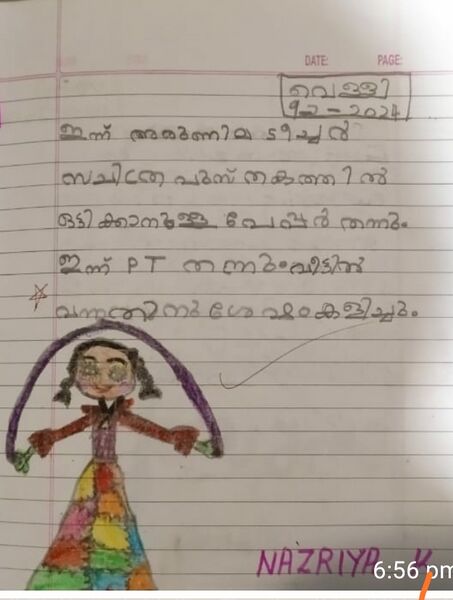 DATE: PAGE:
വെള്ളി
9-2-2024
ഇന്ന് അരുണിമ ടീച്ചർ
സചിത്ര പുസ് തകത്തിൽ
ഒട്ടിക്കാനുള്ള പേപ്പർ തന്നു.
ഇന്ന് PT തന്നു. വീട്ടിൽ
വന്നതിനു ശേഷം കളിച്ചു.
NAZRIYA
6:56 pm